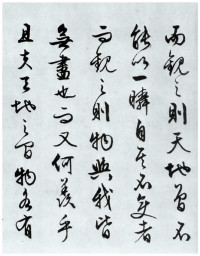 而觀之則天地曾不
能以一瞬自其不變者
而觀之則物與我皆
無盡也而又何羨乎
且夫天地之間物各有